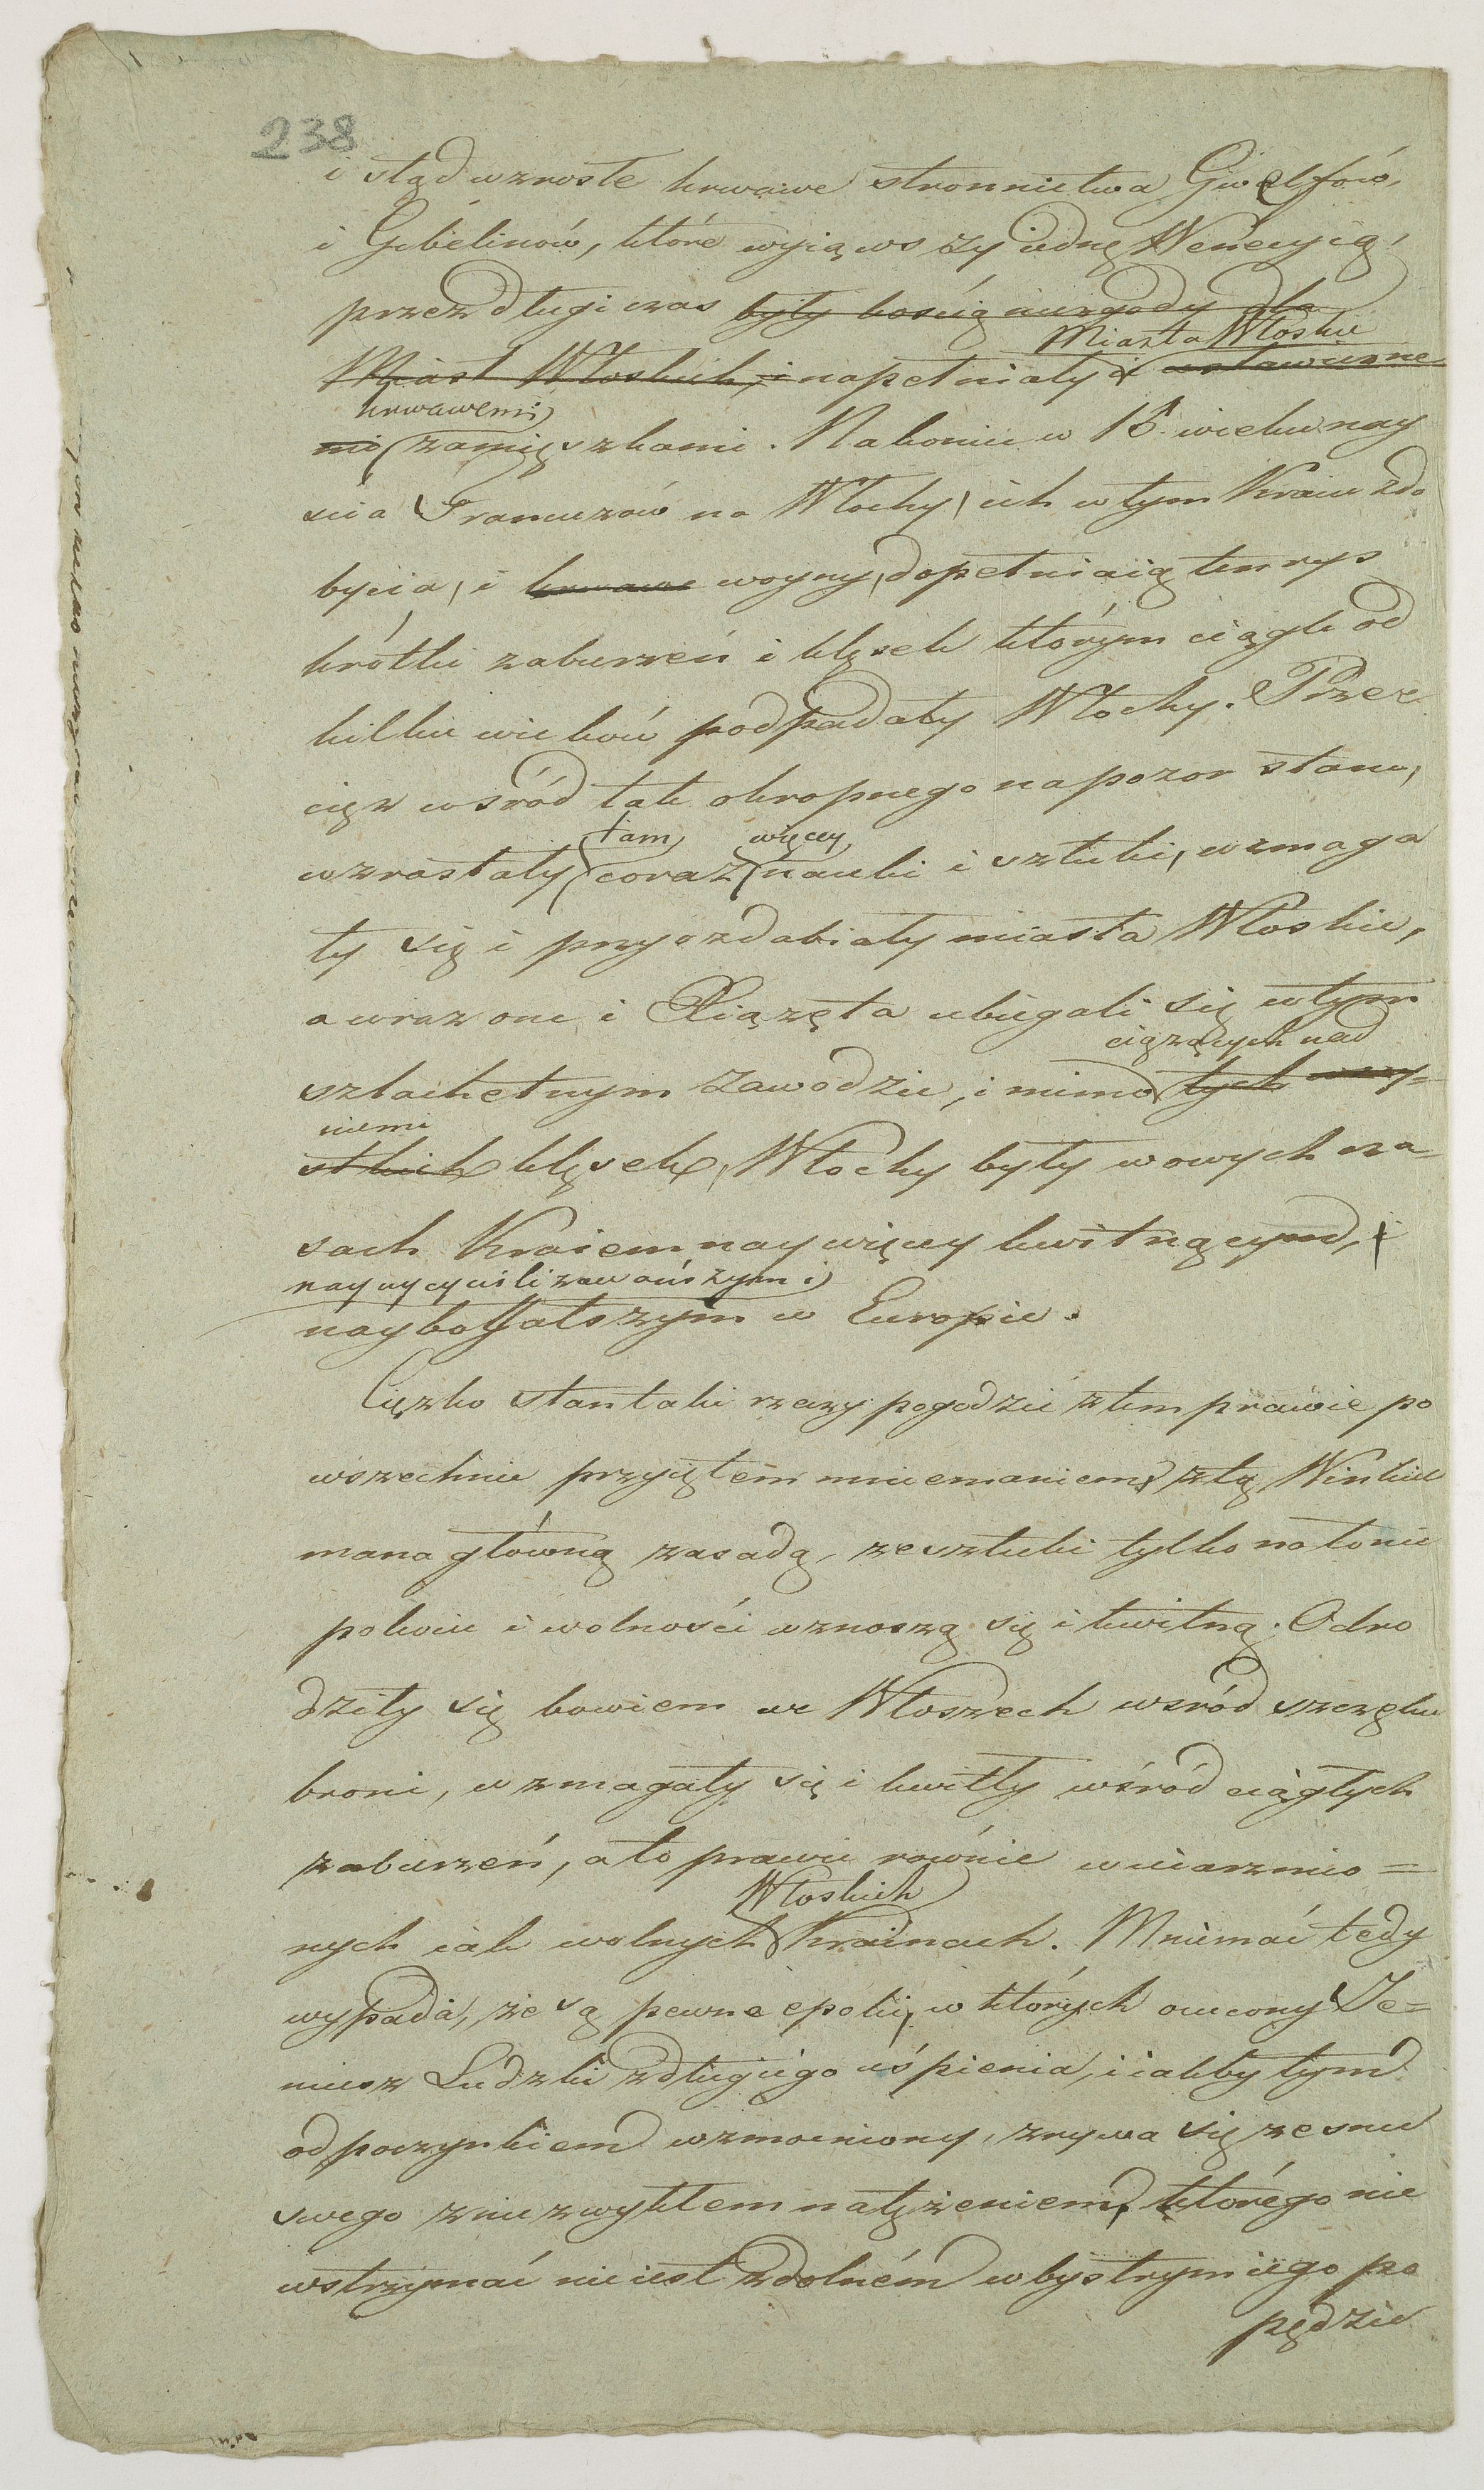 238
i stąd wzrosłe krwawe stronnictwa Gwelfów,
i Gibelinów, które wyiąwszy iedną Wenecyią,
przez długi czas były kością niezgody dla
Miasta Włoskie
Miast Włoskich, i napełniały i ustawiczne
krwawemi
mi zamięszkami. Nakoniec w 15. wieku nay
ścia Francuzów na Włochy, ich w tym Kraiu zdo
bycia, i krwawe woyny, dopełniaią ten rys
krótki zaburzeń i klęsek którym ciągle od
kilku wieków podpadały Włochy. Prze
cięz wsród tak okropnego na pozor stanu,
tam więcey
wzrastały coraz nauki i sztuki, wzmaga
ły się i przyozdabiały miasta Włoskie,
a wraz one i Xiązęta ubiegali się w tym
ciązących nad
szlachetnym zawodzie, i mimo tych wszy=
niemi
stkich klęsek, Włochy były w owych cza=
sach Kraiem naywięcey kwitnącym, i
nayucywilizowańszym i
naybogatszym w Europie.
Cięzko stan taki rzeczy pogodzić z tem prawie po
wszechnie przyiętem mniemaniem, z tą Winkiel
mana główną zasadą, ze sztuki tylko na łonie
pokoiu i wolności wznoszą się i kwitną. Odro
dziły się bowiem we Włoszech wsród szczęku
broni, wzmagały się i kwitły wśród ciągłych
zaburzeń, a to prawie rownie w uiarzmio=
Włoskich
nych iak wolnych Krainach. Mniemać tedy
wypada, że są pewne epoki, w których ocucony Je=
niusz Ludzki z długiego uśpienia, i iakby tym
odpoczynkiem wzmocniony, zrywa się ze snu
swego z niezwykłem natężeniem, którego nic
wstrzymać nie iest zdolném w bystrym iego po
pędzie